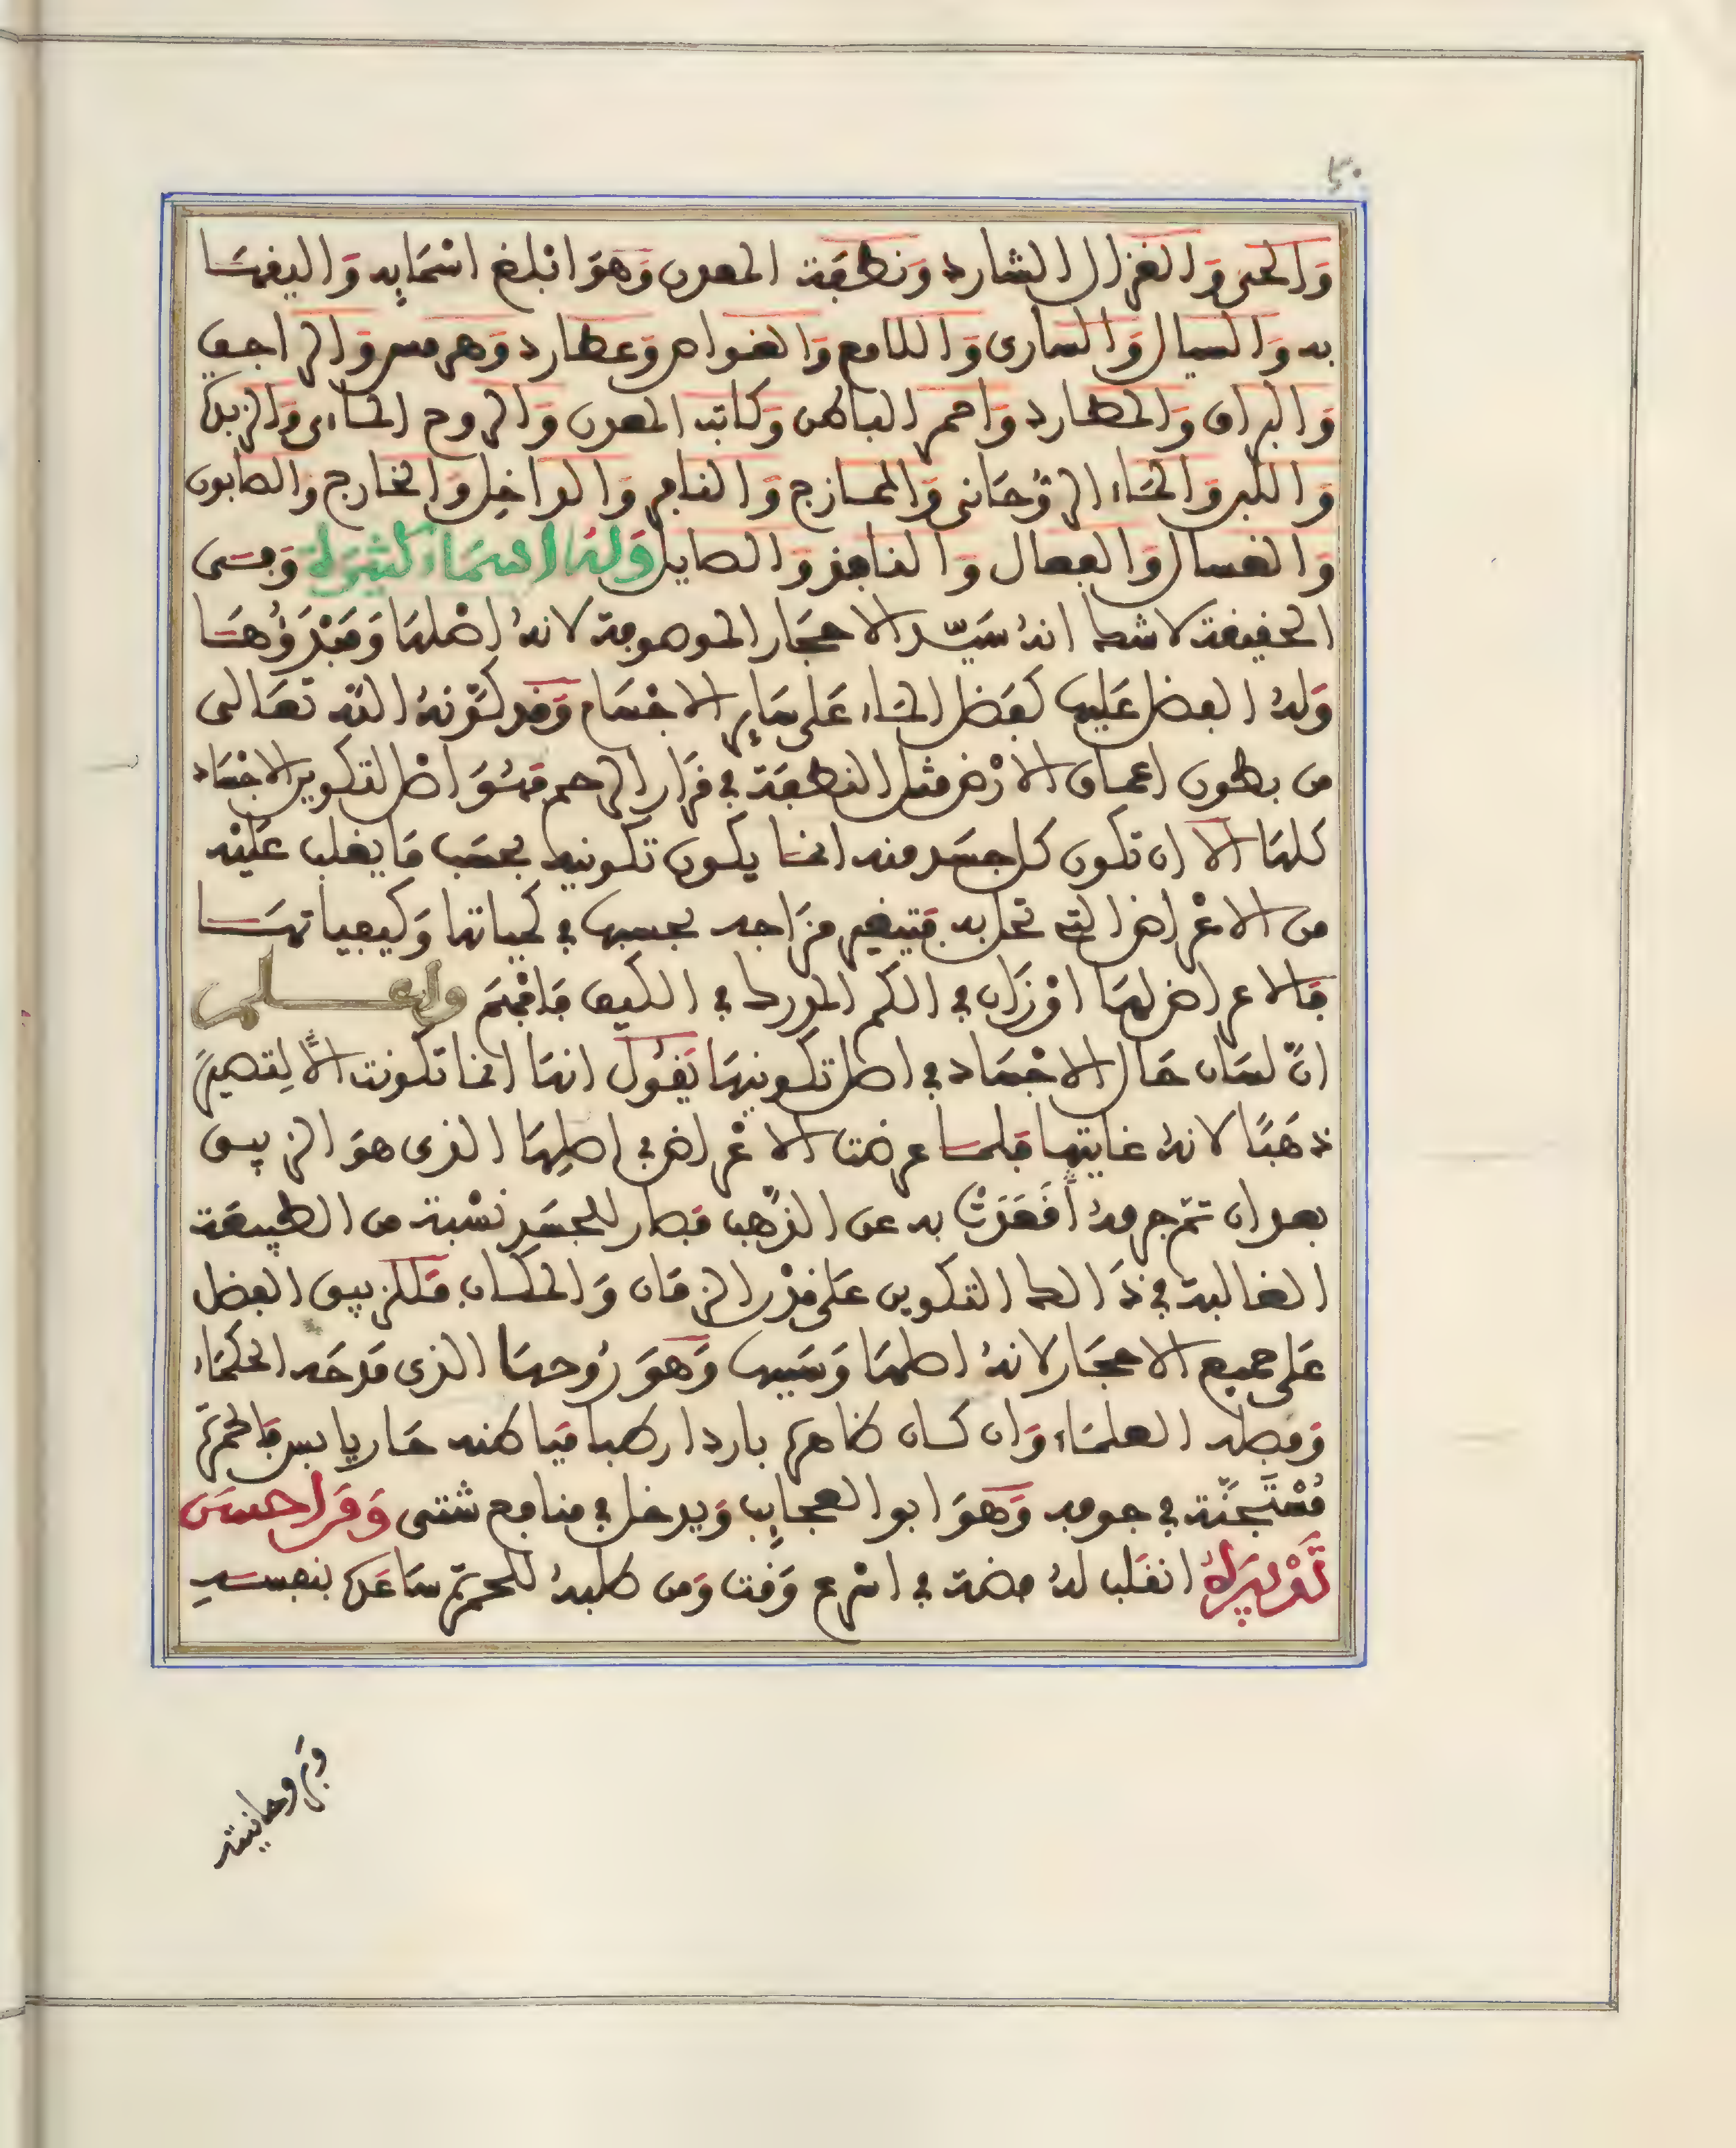 ٥٠
والحى والغزال الشارد ونطفة المعدن وهو ابلغ اسمايه واليقها
به والسيال والسارى واللامع والغواص وعطارد وهرمس والراجف
والبراق والطارد واحمر الباطن وكاتب المعدن والروح الماءى والزبدة
واللبن والماء الروحانى والممازج والنافر والداخل والخارج والصابون
والغسال والفعال والنافذ والصايل وله اسماء كثيرة وفى
الحقيقة لاشك انه سيد الاحجار الموصوفة لانه اصلها ومبدؤها
وله الفضل عليها كفضل الماء على ساير الاجسام وقد كونه الله تعالى
من بطون اعماق الارض مثل النطفة فى قرار الرحم فهو اصل لتكوير الاجساد
كلها الا ان تكون كل جسد منه انما يكون تكونيه بحسب ما يغلب عليه
من الاعراض التى تحل به فتيغير مزاجه بحسبها فى كمياتها وكيفياتها
فالاعراض لها اوزان فى الكم المورد فى الكيف فافهم واعلم
ان لسان حال الاجساد فى اصل تكوينها يقول انها انما تكونت الا لتصير
ذهبا لانه غايتها فلما عرضت الاعراض فى اصلها الذى هو الزيبق
بعد ان تم جرمه اقعدت به عن الذهب فصار للجسد نسبة من الطبيعة
الغالبة فى ذالك التكوين على قدر الزمان والمكان فللزيبق الفضل
على جميع الاحجار لانه اصلها وسببها وهو روحها الذى مدحه الحكماء
وفضله العلماء وان كان ظاهره باردا رطبا فباطنه حار يابس فالحمرة
مستجنة فى جوفه وهو ابو العجايب ويدخل فى منافع شتى ومن احسن
تدبيره انقلب له فضة فى اسرع وقت ومن طلبه للحمرة ساعده بنفسه
وبروحانيته